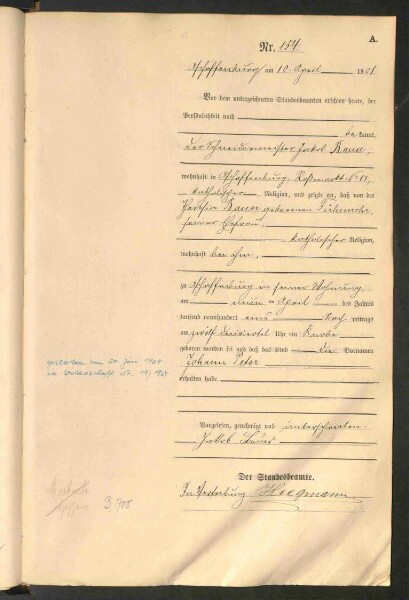 A.
Nr. 154
Aschaffenburg am 10. April 1901
Vor dem unterzeichneten Standesbeamten erschien heute, der
Persönlichkeit nach
be kannt,
der Schneidermeister Jakob
wohnhaft in Aschaffenburg, Roßmarkt
katholischer Religion, und zeigte an, daß von der
geborenen
seiner Ehefrau,
katholischer Religion,
wohnhaft bei ihm,
zu Aschaffenburg in seiner Wohnung,
am neun ten April des Jahres
tausend neunhundert eins Nach mittags
um zwölf dreiviertel Uhr ein Knabe
geboren worden sei und daß das Kind die Vornamen
Johann Peter
erhalten habe.
Vorgelesen, genehmigt und unterschrieben
Jakob
Der Standesbeamte.
In Vertretung
gestorben am 20. Juni
in
B 708